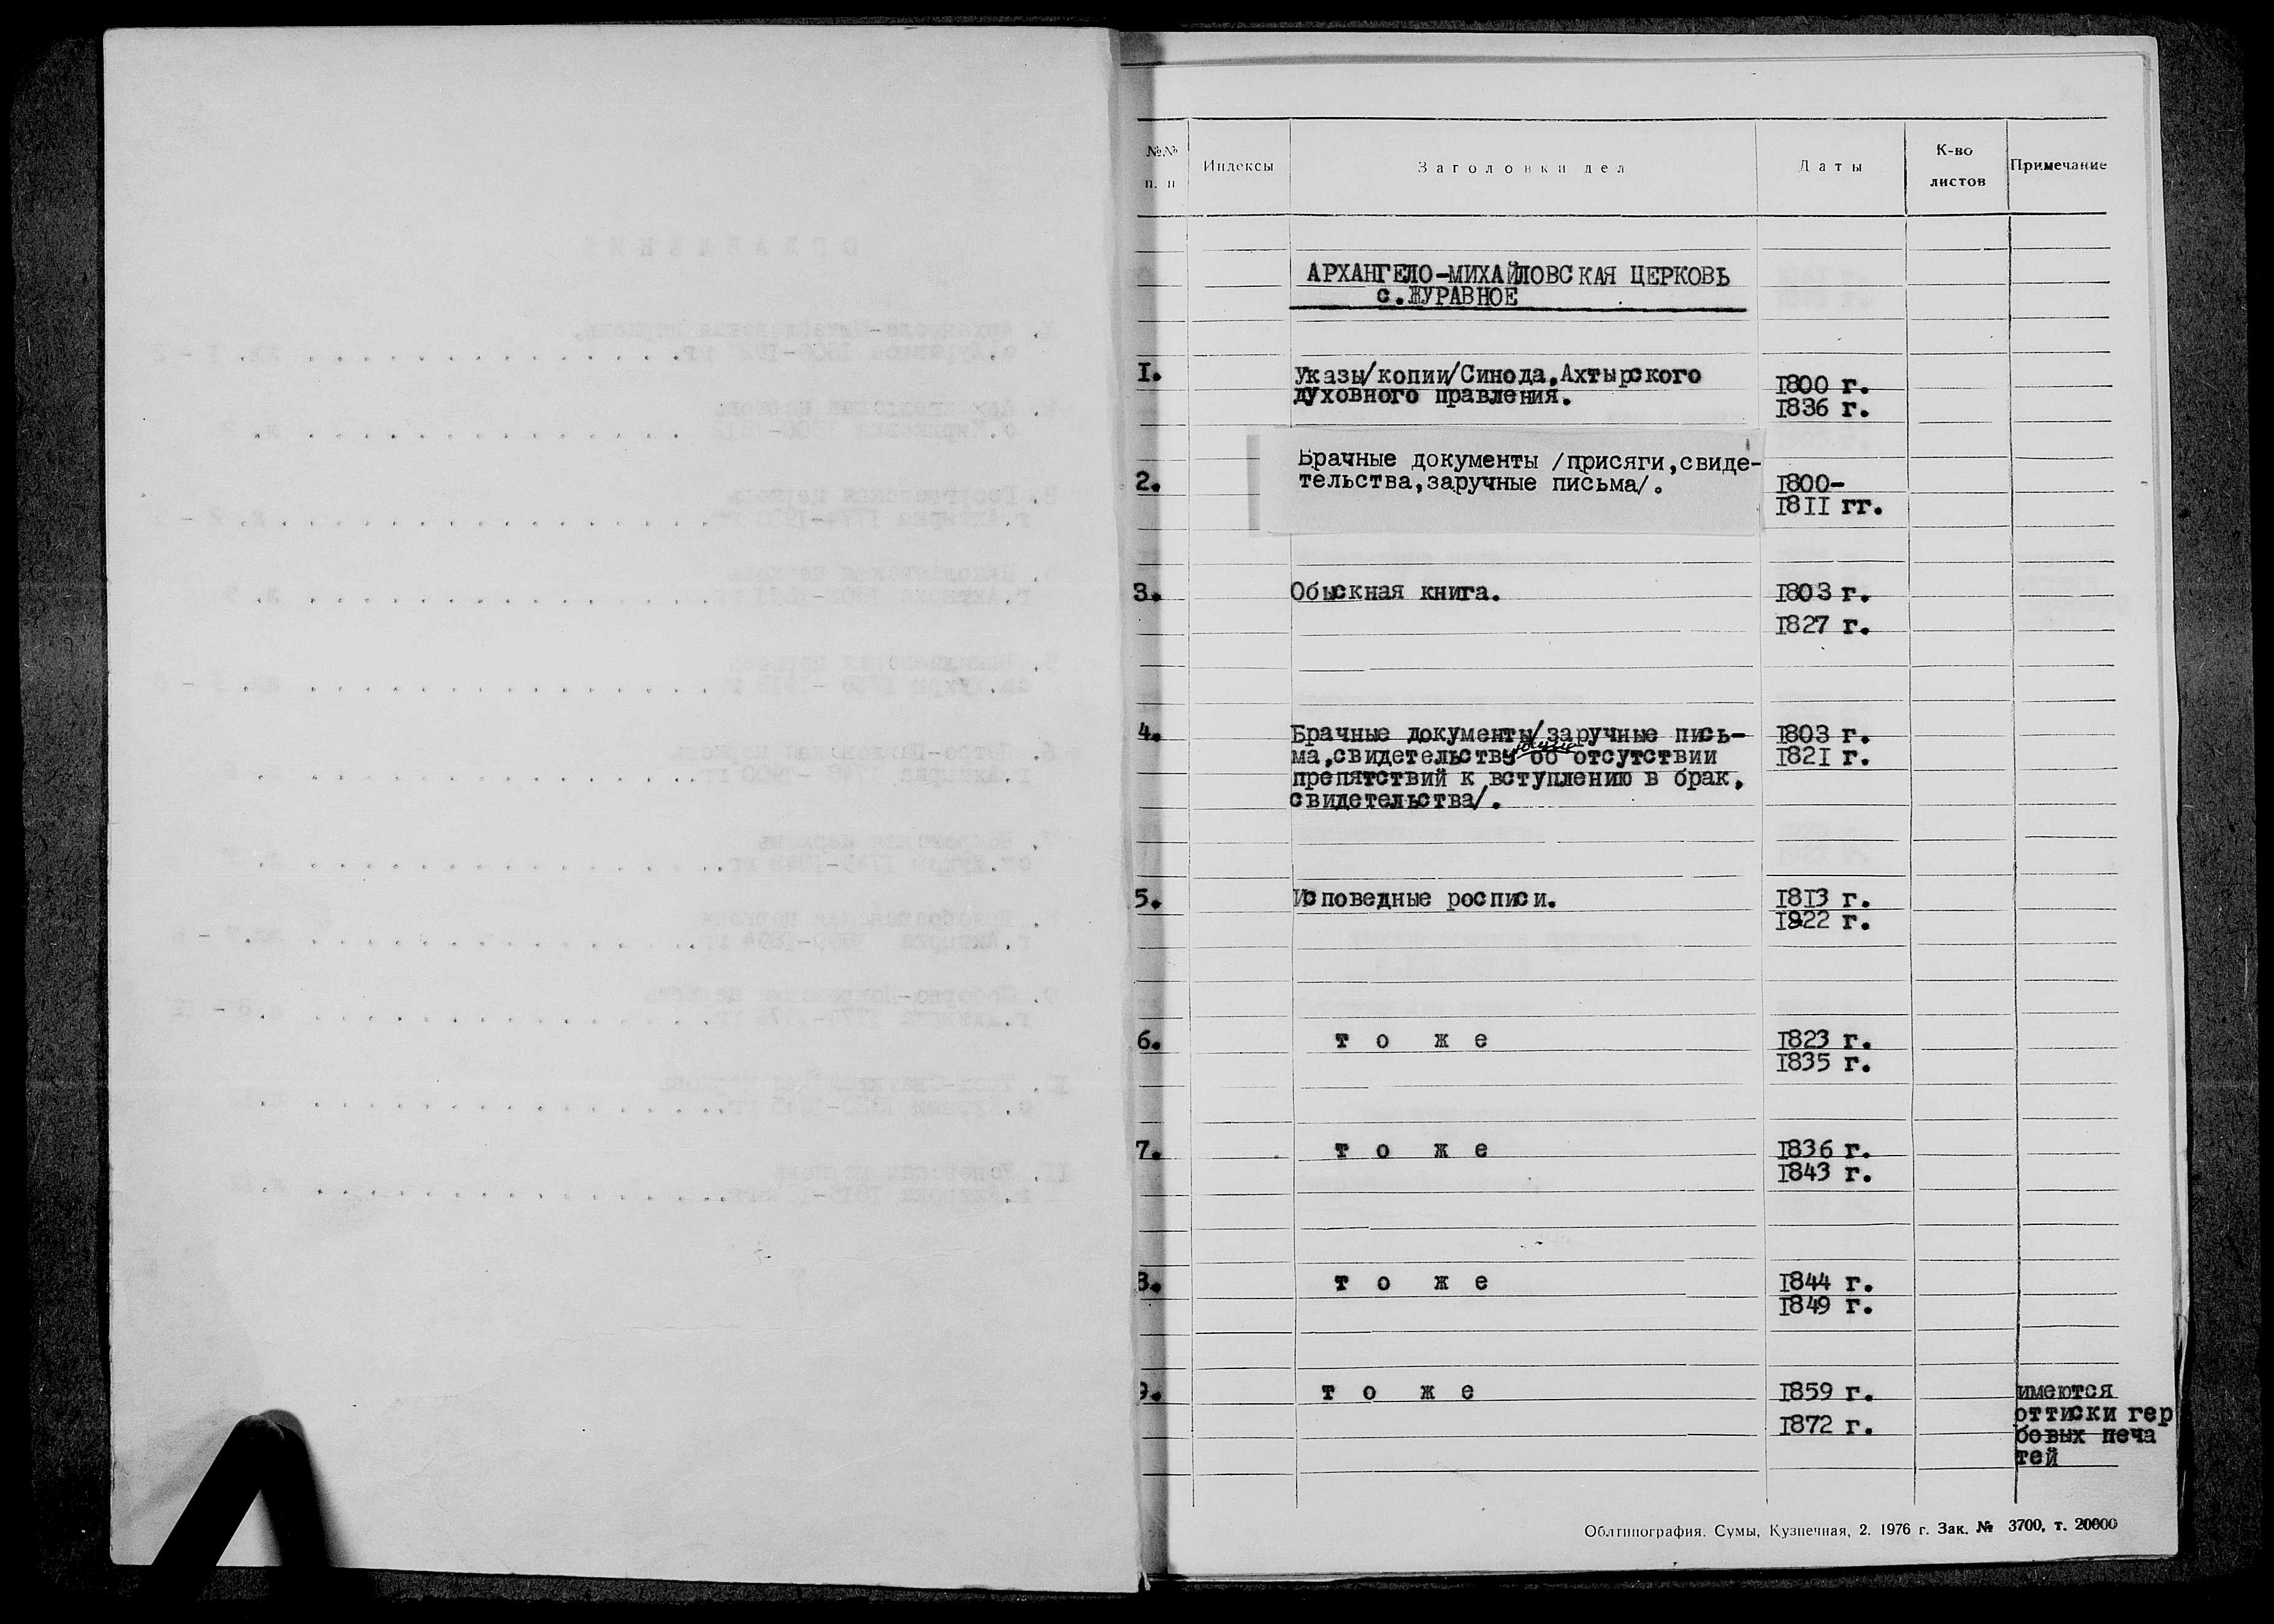 №.№ п. п Индексы Заголовки дел Даты К-во листов Примечание
АРХАНГЕЛО-МИХАЙЛОВСКАЯ ЦЕРКОВЬ
с.ЖУРАВНОЕ
1. Указы/копии/Синода,Ахтырского 1800 г.
духовного правления. 1836 г.
Брачные документы /присяги,свиде-
2. тельства,заручные письма/. 1800-
1811 гг.
3. Обыскная книга. 1803 г.
1827 г.
4. Брачные документы/заручные пись- 1803 г.
ма,свидетельству об отсутствии 1821 г.
препятствий к вступлению в брак,
свидетельства/.
5. Исповедные росписи. 1813 г.
1822 г.
6. т о ж е 1823 г.
1835 г.
7. т о ж е 1836 г.
1843 г.
8. т о ж е 1844 г.
1849 г.
9. т о ж е 1859 г. имеются
1872 г. оттиски гер
бовых печа
тей
Облтипография. Сумы, Кузнечная, 2. 1976 г. Зак. № 3700, т. 20000